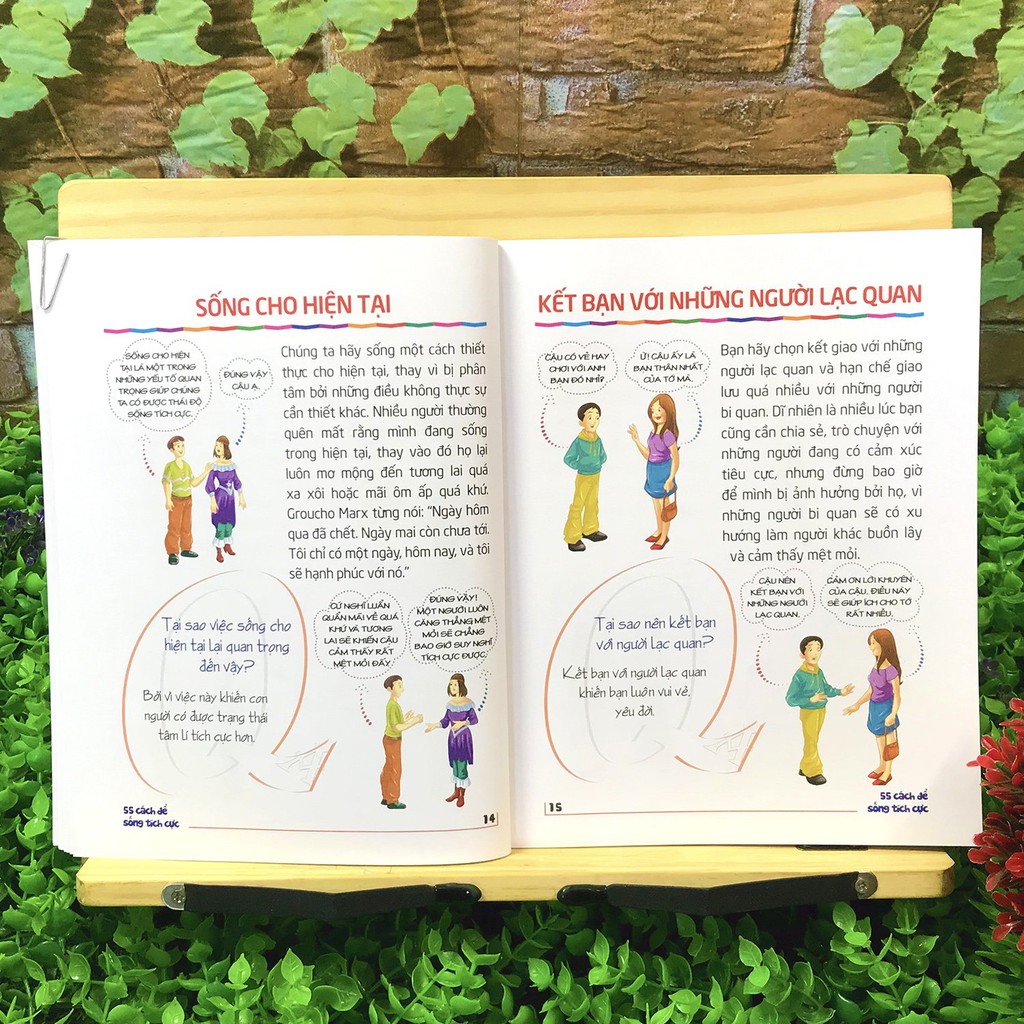 SỐNG CHO HIỆN TẠI
SỐNG CHO HIỆN
TẠI LÀ MỘT TRONG
NHỮNG YẾU TỐ QUAN
TRỌNG GIÚP CHÚNG
TA CÓ ĐƯỢC THÁI ĐỘ
SỐNG TÍCH CỰC.
ĐÚNG VẬY
CẬU Ạ.
Chúng ta hãy sống một cách thiết
thực cho hiện tại, thay vì bị phân
tâm bởi những điều không thực sự
cần thiết khác. Nhiều người thường
quên mất rằng mình đang sống
trong hiện tại, thay vào đó họ lại
luôn mơ mộng đến tương lai quá
xa xôi hoặc mãi ôm ấp quá khứ.
Groucho Marx từng nói: “Ngày hôm
qua đã chết. Ngày mai còn chưa tới.
Tôi chỉ có một ngày, hôm nay, và tôi
sẽ hạnh phúc với nó.”
Tại sao việc sống cho
hiện tại lại quan trọng
đến vậy?
Bởi vì việc này khiến con
người có được trạng thái
tâm lí tích cực hơn.
CỨ NGHĨ LUẨN
QUẨN MÃI VỀ QUÁ
KHỨ VÀ TƯƠNG
LAI SẼ KHIẾN CẬU
CẢM THẤY RẤT
MỆT MỎI ĐẤY.
ĐÚNG VẬY!
MỘT NGƯỜI LUÔN
CĂNG THẲNG MỆT
MỎI SẼ CHẲNG
BAO GIỜ SUY NGHĨ
TÍCH CỰC ĐƯỢC.
55 cách để
sống tích cực
14
KẾT BẠN VỚI NHỮNG NGƯỜI LẠC QUAN
CẬU CÓ VẺ HAY
CHƠI VỚI ANH
BẠN ĐÓ NHỈ?
Ừ! CẬU ẤY LÀ
BẠN THÂN NHẤT
CỦA TỚ MÀ.
Bạn hãy chọn kết giao với những
người lạc quan và hạn chế giao
lưu quá nhiều với những người
bi quan. Dĩ nhiên là nhiều lúc bạn
cũng cần chia sẻ, trò chuyện với
những người đang có cảm xúc
tiêu cực, nhưng đừng bao giờ
để mình bị ảnh hưởng bởi họ, vì
những người bi quan sẽ có xu
hướng làm người khác buồn lây
và cảm thấy mệt mỏi.
Tại sao nên kết bạn
với người lạc quan?
Kết bạn với người lạc quan
khiến bạn luôn vui vẻ,
yêu đời.
CẬU NÊN
KẾT BẠN VỚI
NHỮNG NGƯỜI
LẠC QUAN.
CẢM ƠN LỜI KHUYÊN
CỦA CẬU. ĐIỀU NÀY
SẼ GIÚP ÍCH CHO TỚ
RẤT NHIỀU.
15
55 cách để
sống tích cực